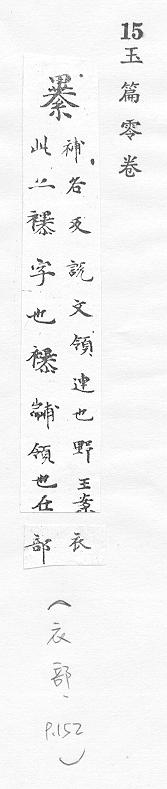 15 玉篇零卷
補各反說文領連也野王案
此亦襮字也襮黼領也在
衣
部
(衣部、P.152)